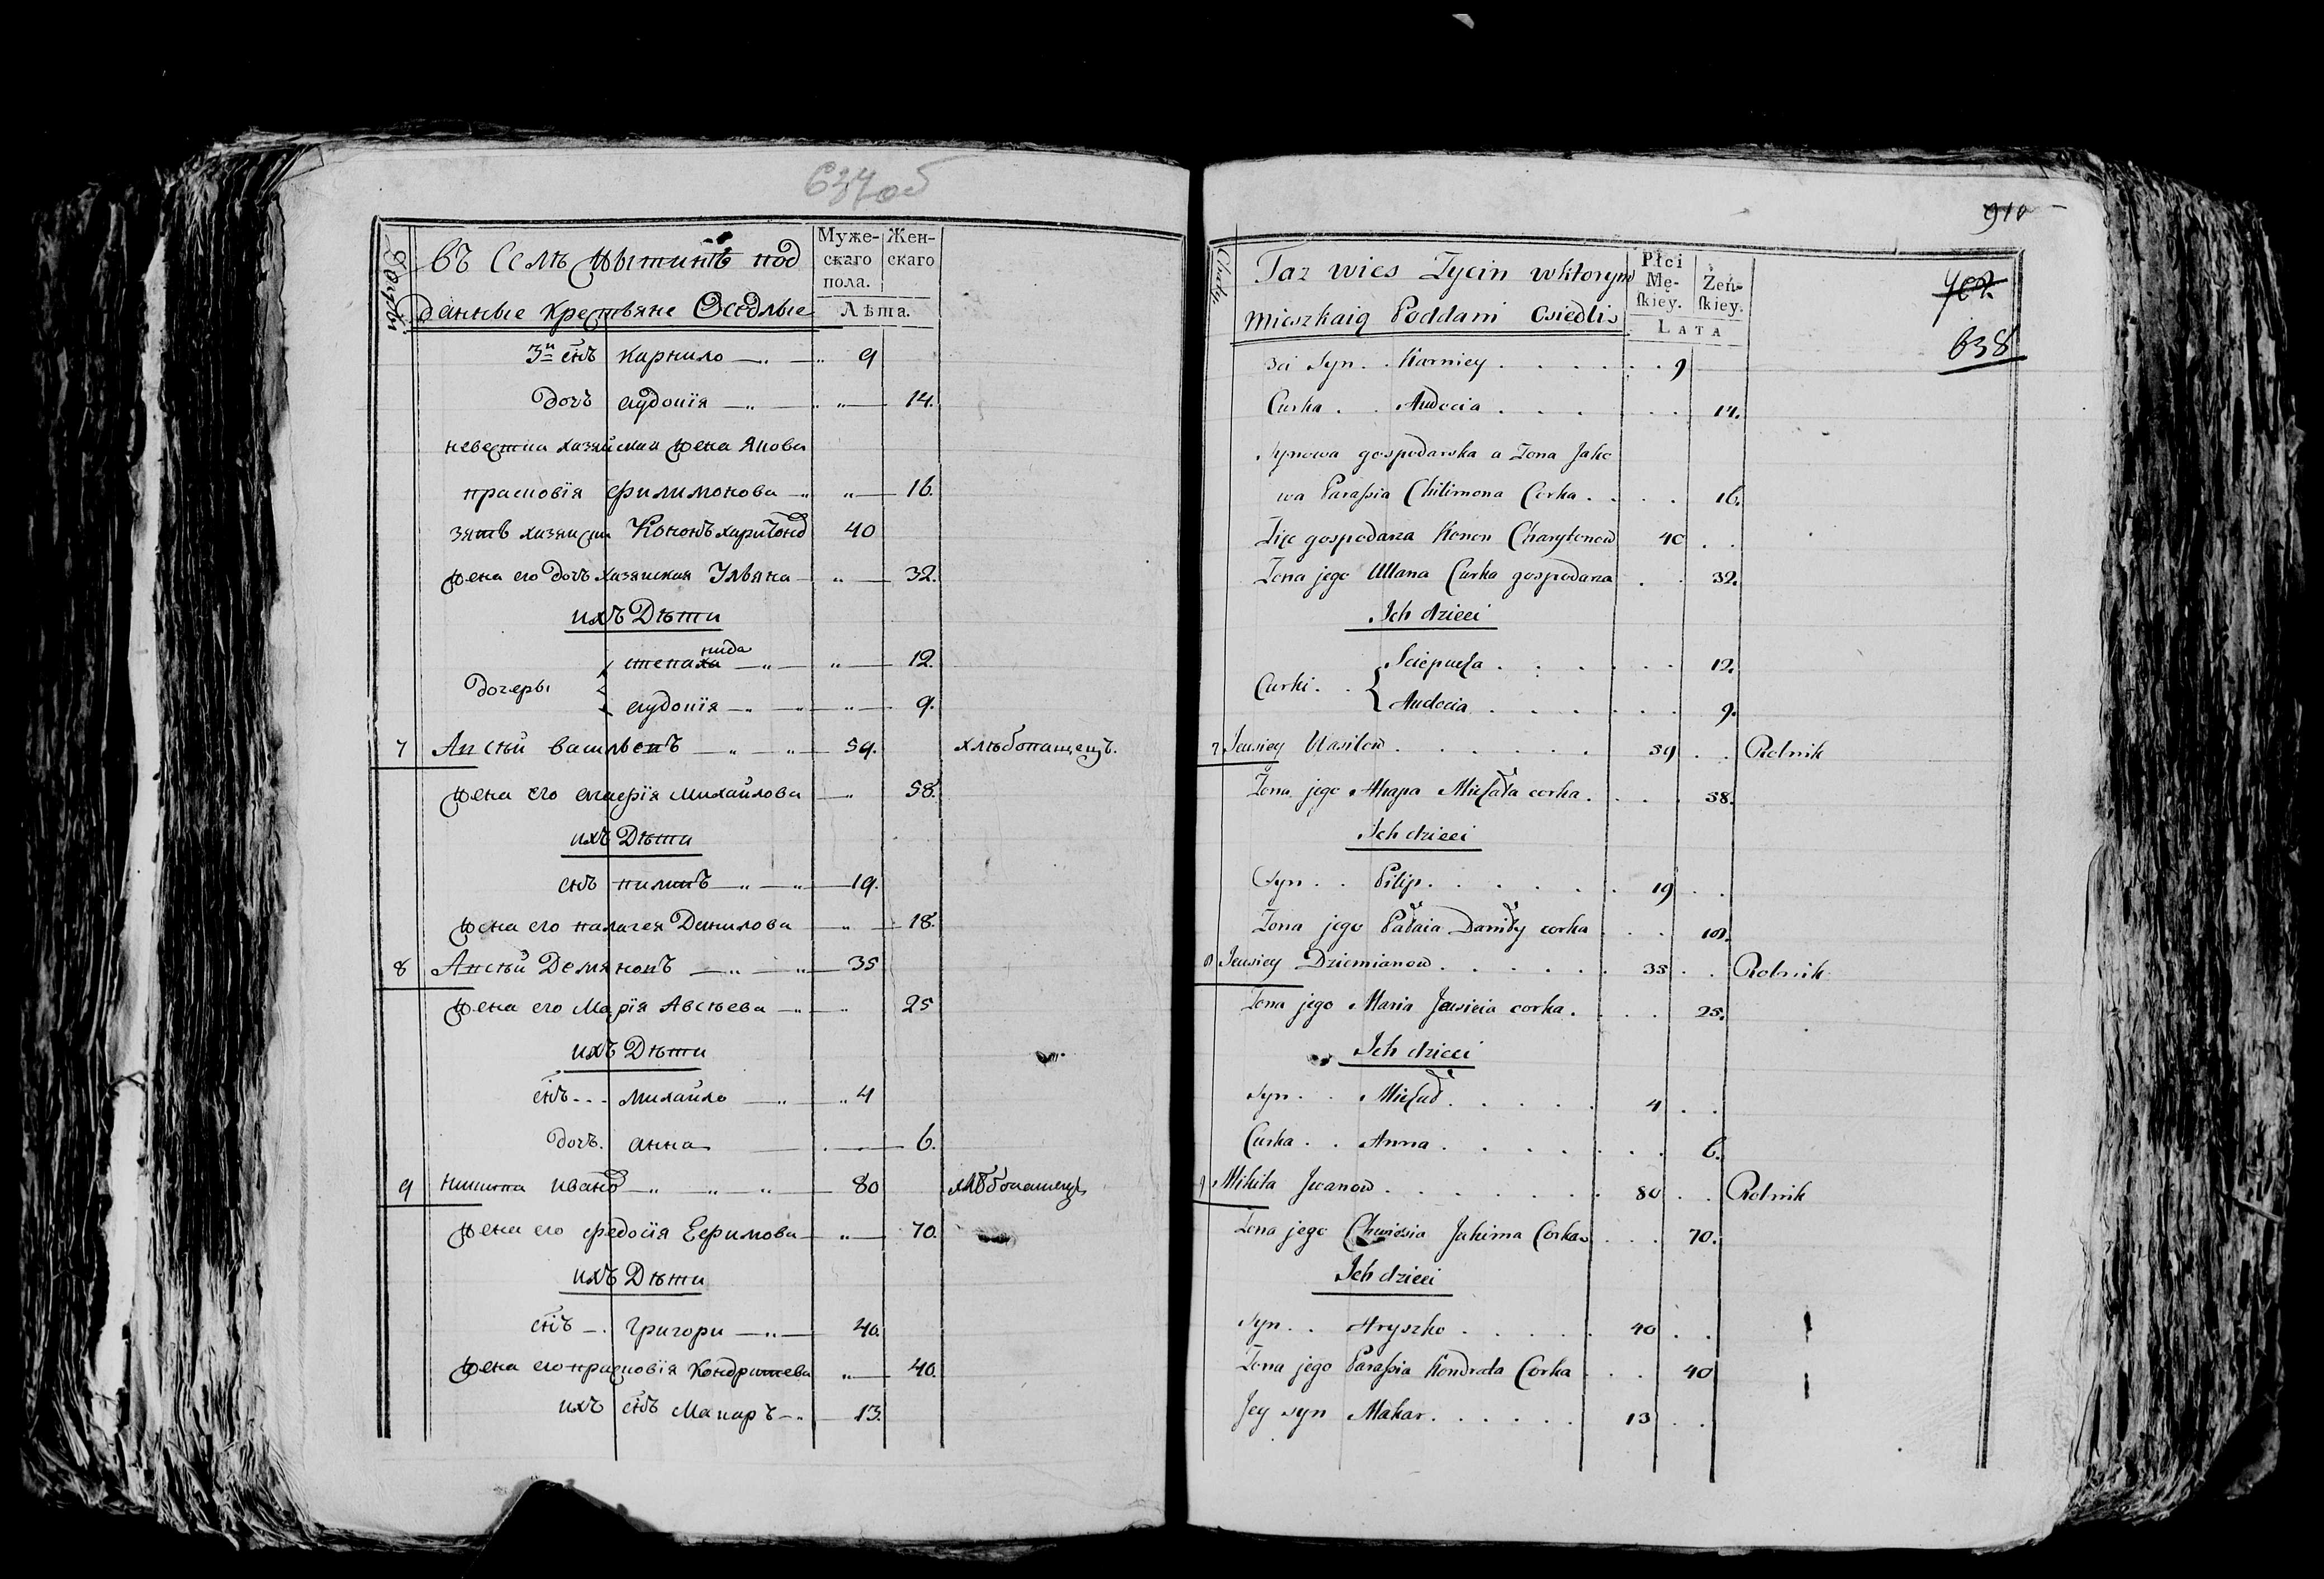 634 об
въ Селѣ Житинѣ под
данные крестьяне Осѣдлые
Муже-
скаго
пола.
Жен-
скаго
Лѣта.
3й снъ карнило 9
дочъ аудоція 14.
невестка хазяйская жена Якова
прасковія филимонова 16.
зять хазяиски Кононъ харитонов 40
жена его дочъ хазяиская Ульяна 32.
ихъ Дѣти
степанида 12.
дочеры
аудоція 9.
7 васильевъ 59. хлѣбопашецъ.
жена его михайлова 58.
ихъ Дѣти
снъ 19.
жена его палагея Данилова 18.
8 Демяновъ 35
жена его Марія Авсѣева 25
ихъ Дѣти
снъ михайло 4
дочъ. анна 6.
9 никита иванов 80 хлѣбопашецъ
жена его федосія Ефимова 70.
ихъ Дѣти
снъ григори 40.
жена его прасковія Кондратева 40.
ихъ снъ Макаръ 13.
910
702
638
Chaty
Taz wies Zycin wktorym
Mieszkaią Poddani Osiedlis
Płci
Mę-
skiey.
Żeń-
skiey.
LATA
3ci Syn Karniey 9
Curka Audocia 14.
Synowa gospodarska a Zona Jako
wa Parassia Chilimona Corka 16.
Zięc gospodarza Konon Charytonow 40
Zona jego Ullana Curka gospodarza 32.
Ich dzieci
12.
Curki
Audocia 9.
7 Jeusiey Wasilow 59 Rolnik
Zona jego Ahapa corka 58.
Ich dzieci
Syn Pilip 19
Zona jego Pałaia Daniły corka 18.
8 Jeusiey Dziemianow 35 Rolnik
Zona jego Maria Jeusieia corka 25.
Ich dzieci
Syn 4
Curka Anna 6.
9 Mikita Jwanow 80 Rolnik
Zona jego Chwiesia Jachima Corka 70.
Ich dzieci
Syn Hryszko 40
Zona jego Parassia Kondrata Corka 40
Jey syn Makar 13